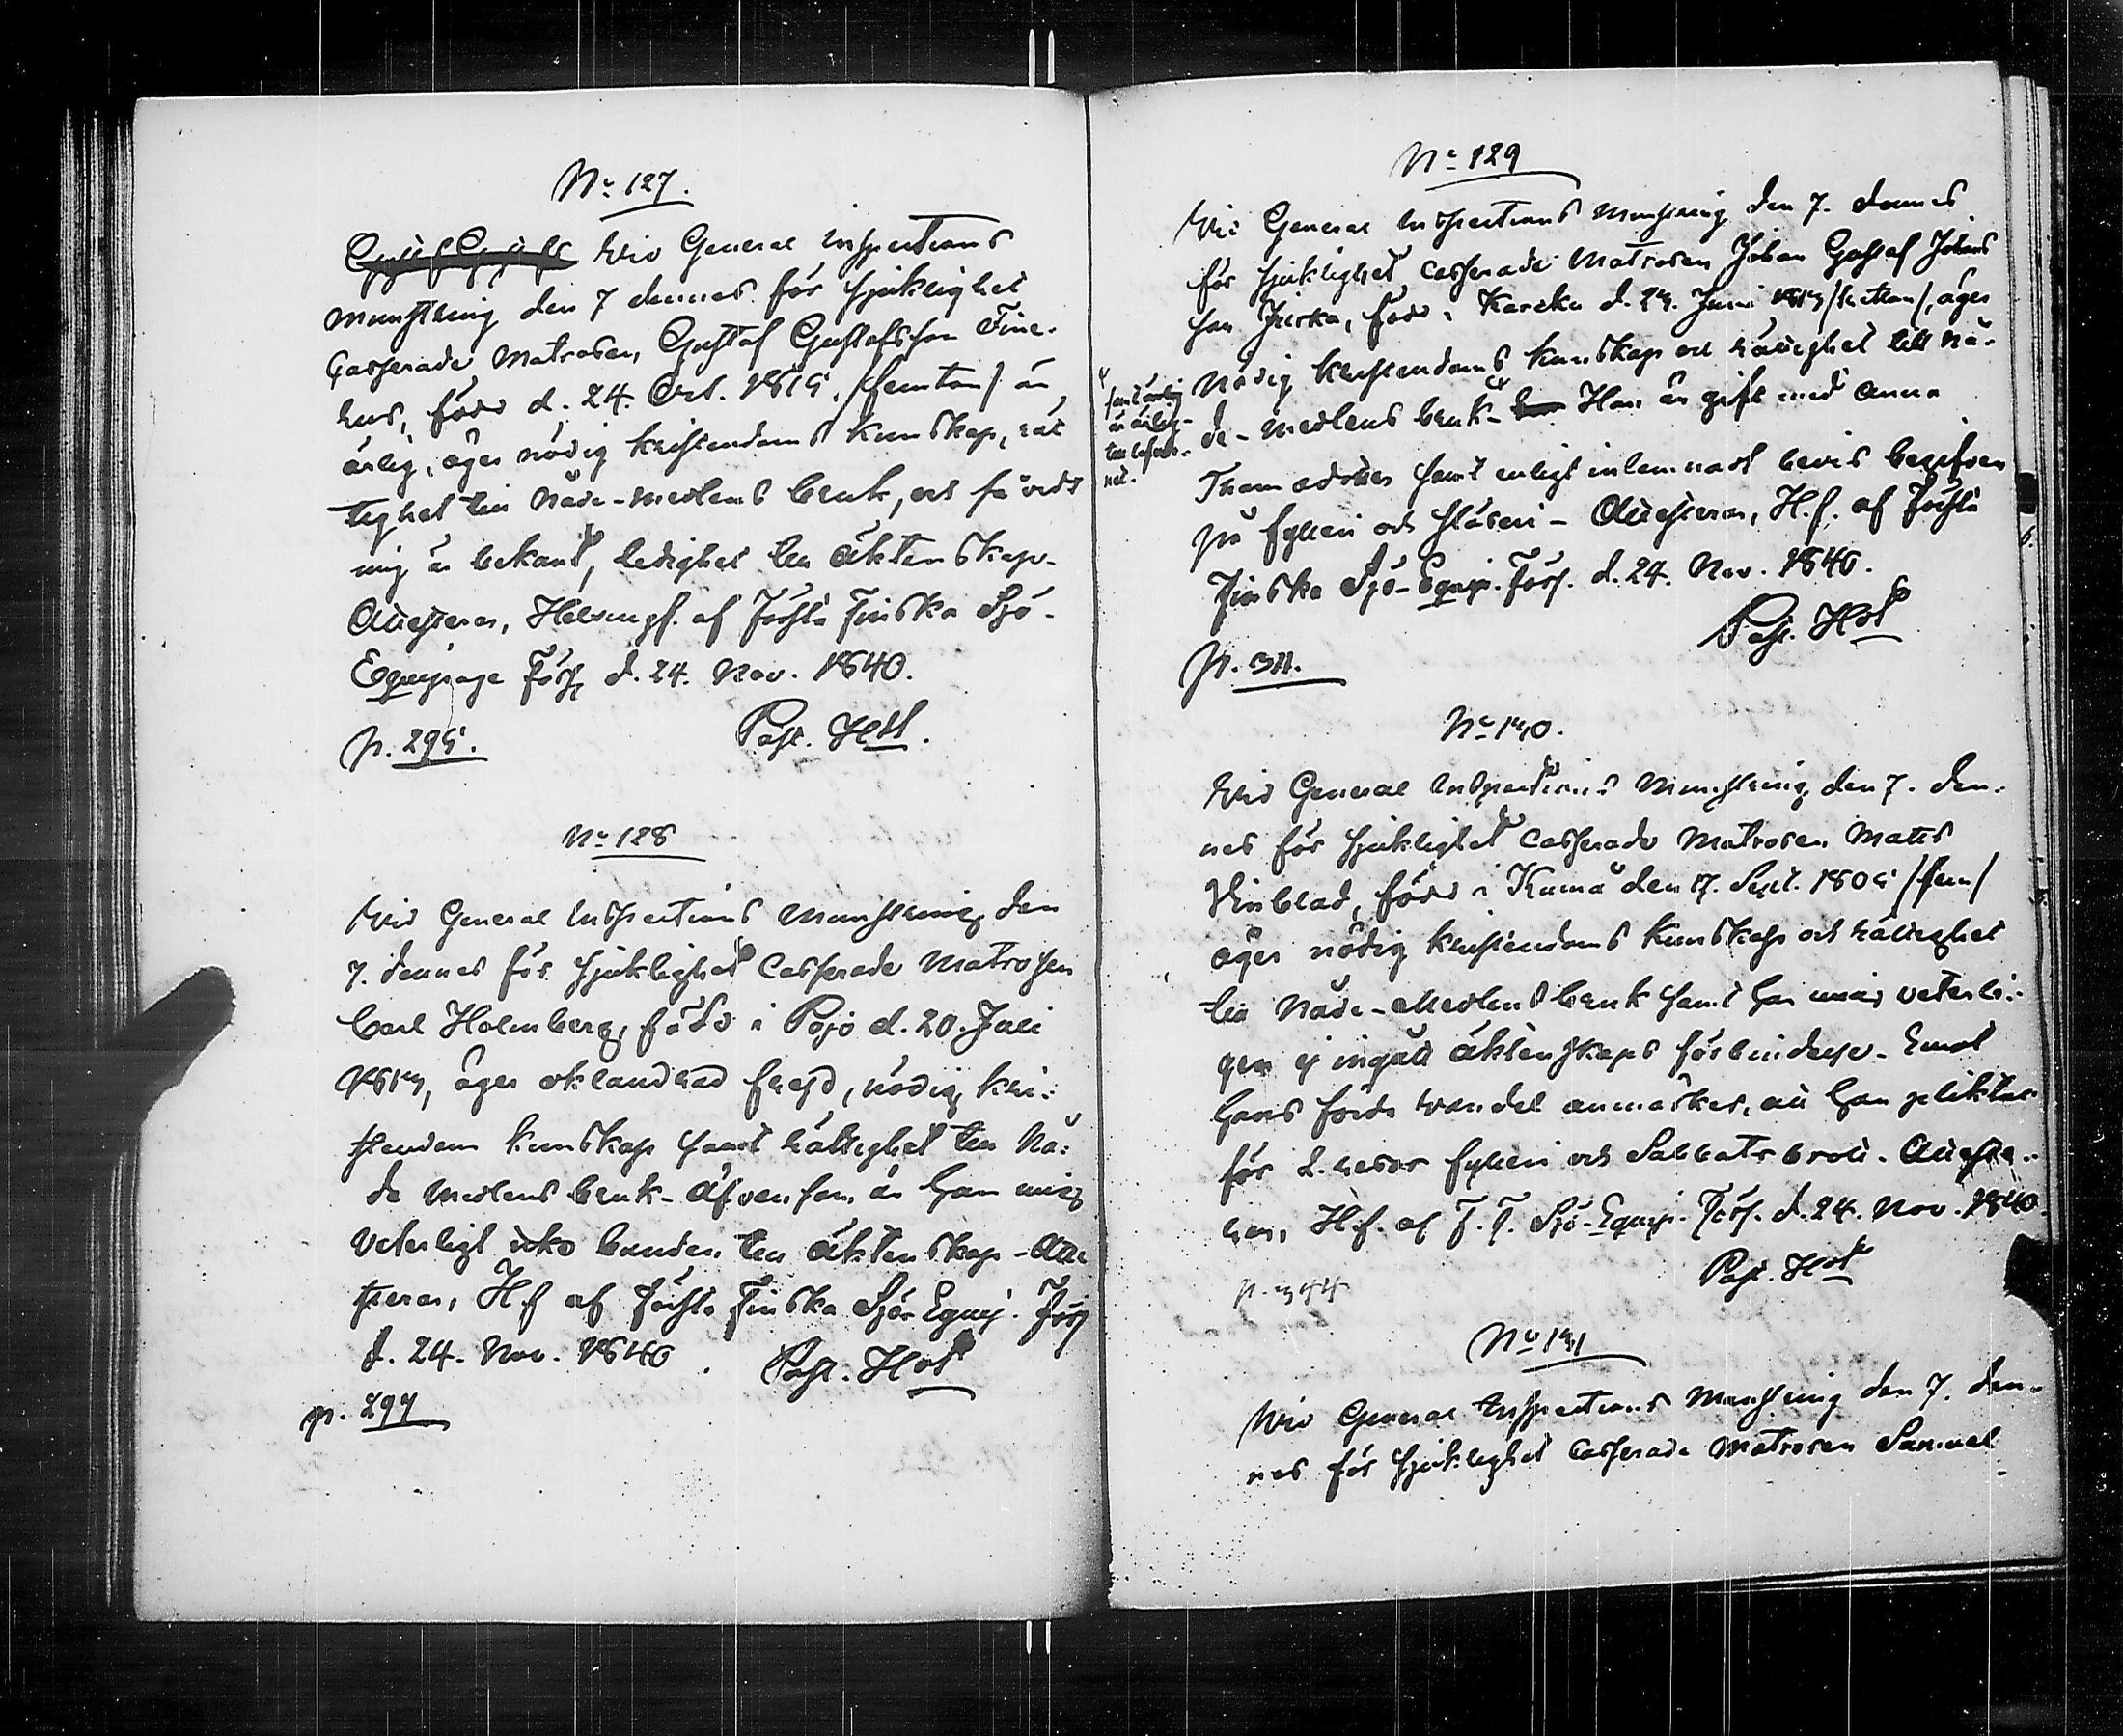 No 127.
Wid General Inspections
munstring den 7 dennes för sjuklighet
Casserade Matrosen, Gustaf Gustafsson Fine-
lius, född d. 24. Oct. 1815, /femton/ är
ärlig, äger nödig kristendoms kunskap, rät
tighet till Nåde-medlens bruk, och så vidt
mig är bekant, ledighet till äktenskap.
Attesterar, Helsingf. af Första Finska Sjö-
Equipage Förs. d. 24. Nov. 1840.
p. 295. Past.
No 128
Wid General Inspections Munstring den
7. dennes för sjuklighet Casserade Matrosen
Carl Holmberg, född i Pojo d. 20. Juli
äger oklandrad frejd, nödig kri-
stendom kunskap samt rättighet till Nå-
de Medlens bruk. Äfvensom är han mig
veterligt icke bunden till äktenskap. Atte
sterar, H.f af Första Finska Sjö-Equip. Förs
d. 24. Nov. 1840. Past.
p. 297
No 129
Wid General Inspections Munstring den 7. dennes
för sjuklighet Casserade Matrosen Johan Gustaf Johans
son född i Karcku d. 24. Juni äger
nödig kristendoms kunskap och rättighet till Nå-
samt ärlig
de-medlens bruk. Han är gift med Anna
Thomædotter samt enligt inlemnadt bevis begifven
på fylleri och slåsseri. Attesterar, H.f. af Första
Finska Sjö-Equip. Förs. d. 24. Nov. 1840.
Past.
p. 311.
No 130.
Wid General Inspections Munstring den 7. den-
nes för sjuklighet Casserade Matrosen Matts
född i Kumå den 17. Sept. 1805 /fem/
äger nödig kristendoms kunskap och rättighet
till Nåde-Medlens bruk samt har mig veterli-
gen ej ingått äktenskaps förbindelse. Emot
hans förda wandel anmärkes, att han pliktat
för 2. resor fylleri och Sabbatsbrott. Atteste-
rar, H.f. af F. F. Sjö-Equip. Förs. d. 24. Nov. 1840.
Past.
p. 344
No 131
Wid General Inspections Munstring den 7. den-
nes för sjuklighet Casserade Matrosen Samuel